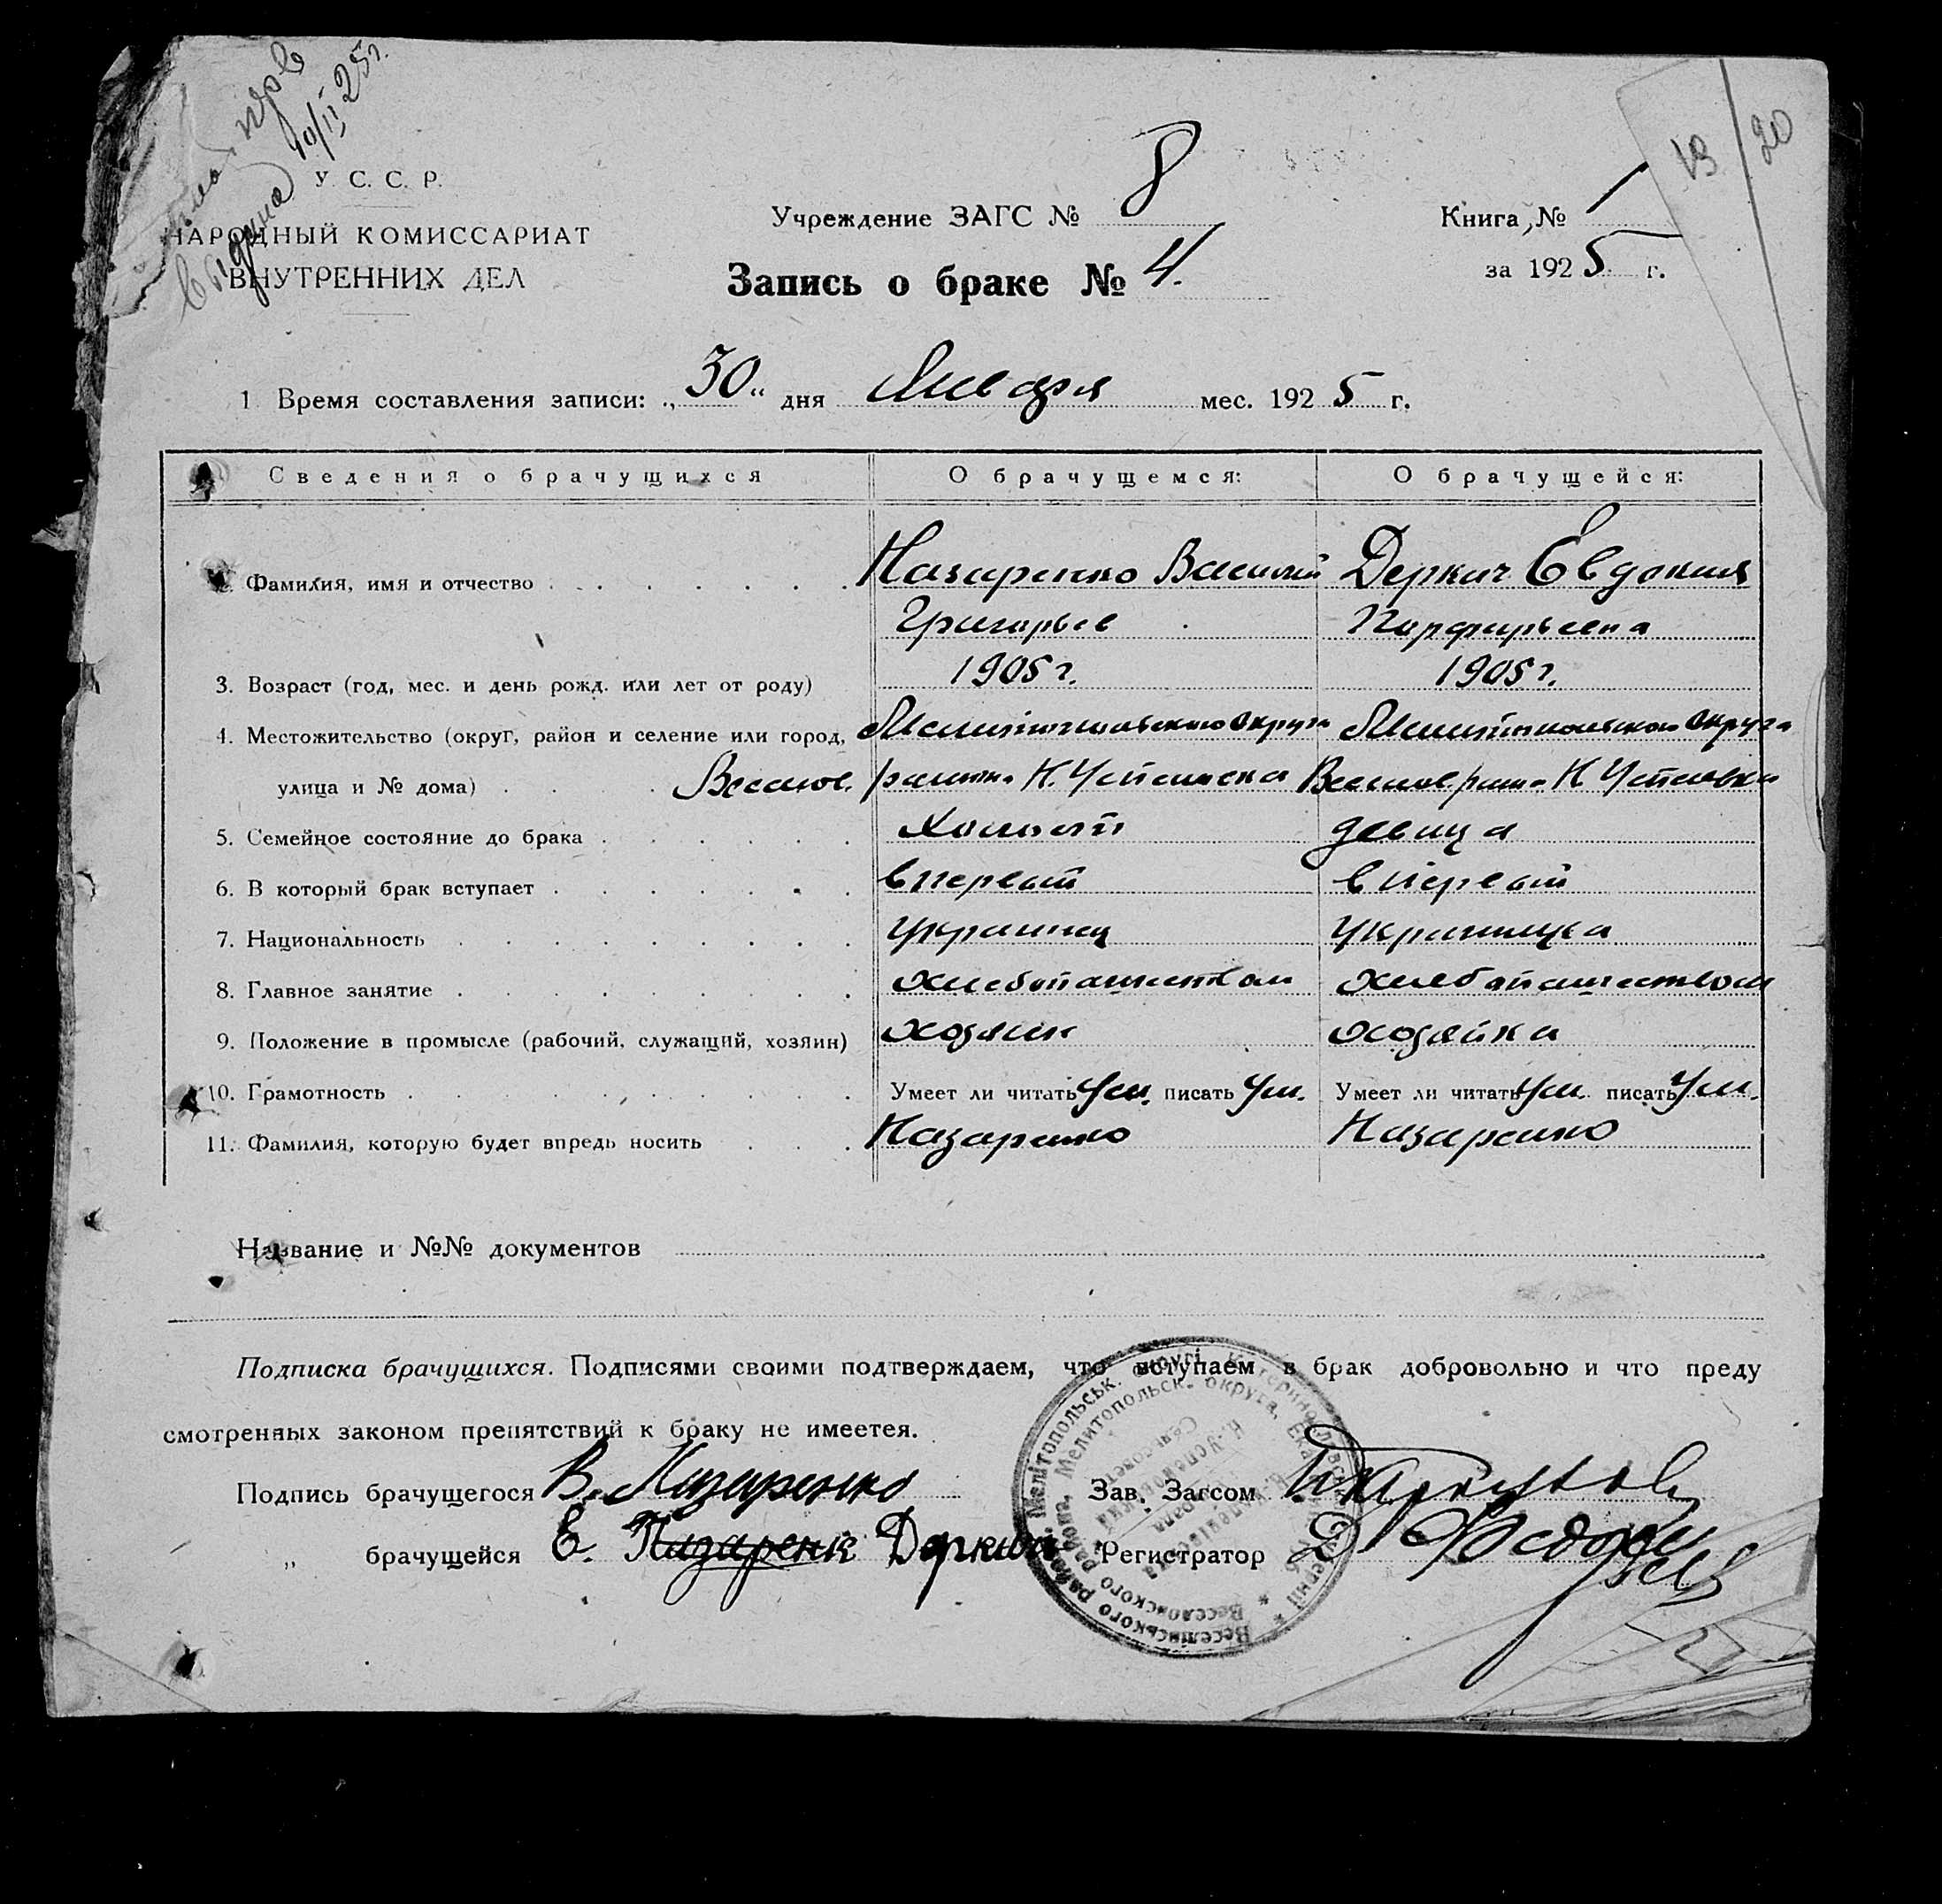 10/II 25г.
13
20
У. С. С. Р.
НАРОДНЫЙ КОМИССАРИАТ
ВНУТРЕННИХ ДЕЛ
Учреждение ЗАГС № 8
Запись о браке № 4.
Книга № 1
за 1925 г.
1. Время составления записи: „30“ дня Января мес. 1925 г.
Сведения о брачущихся О брачущемся: О брачущейся:
Фамилия, имя и отчество Назаренко Василий Деркач Евдокия
Григорьев Порфирьевна
3. Возраст (год, мес. и день рожд. или лет от роду) 1905 г. 1905 г.
4. Местожительство (округ, район и селение или город, Мелитопольского округа Мелитопольского округа
улица и № дома) Веселов. района Н. Успеновка Веселов. района Н Успеновка
5. Семейное состояние до брака Холост девица
6. В который брак вступает в первый в первый
7. Национальность украинец украинка
8. Главное занятие хлебопашеством хлебопашеством
9. Положение в промысле (рабочий, служащий, хозяин) хозяин хозяйка
10. Грамотность Умеет ли читать Ум. писать Ум. Умеет ли читать Ум. писать Ум.
11. Фамилия, которую будет впредь носить Назаренко Назаренко
Название и №№ документов
Подписка брачущихся. Подписями своими подтверждаем, что вступаем в брак добровольно и что преду
смотренных законом препятствий к браку не имеется.
Подпись брачущегося В. Назаренко Зав. Загсом
„ брачущейся Е. Назаренк Деркач Регистратор
Мелітопольськ. округі, Катеринославськ. губернії * Веселівського району
Мелитопольск. округа, Веселовского района